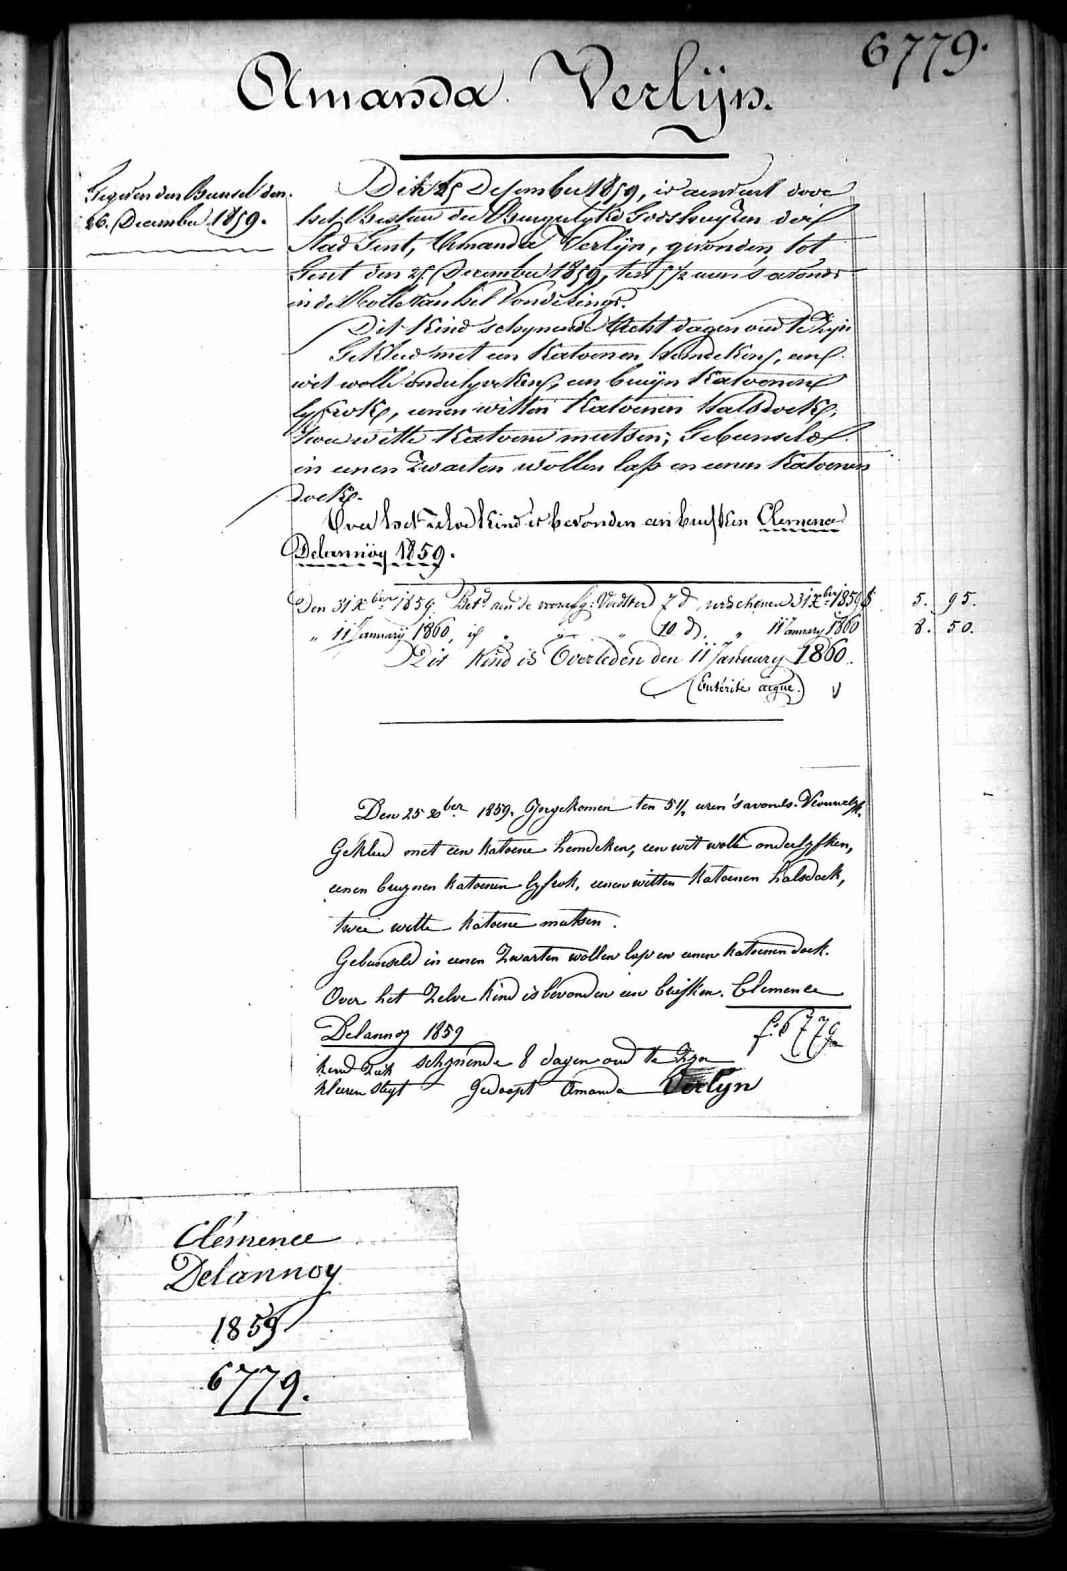 6779.
Amanda Verlijn.
Gegeven den Bunsel den
26. December 1859.
Dit 25 December 1859, is aenveert door
het Bestuer der Burgerlyke Godshuyzen der
Stad Gent, Amanda Verlijn, gevonden tot
Gent den 25 December 1859, ten 5 1/2 uren s'avonds
in de Rolle van het Vondelings.
Dit Kind schynende Acht dagen oud te zyn
Gekleed met een Katoenen hemdeken, een
wit wolle onderlyveken, een bruyn Katoenen
lyfrok, eenen witten Katoenen halsdoek,
twee witte Katoene mutsen; Gebunseld
in eenen Zwarten wollen lap en eenen Katoenen
doek.
Over het zelve kind is bevonden een briefken Clemence
Delannoy 1859.
Den 31 Xber 1859. Betd aen de voorsg: Voedster 7 d. verschenen 31 Xber 1859 f 5. 95.
" 11 January 1860, id " " 10 d. " 11 January 1860 8. 50.
Dit Kind is Overleden den 11 January 1860.
(Entérite aigue.)
Den 25 Xber 1859. Ingekomen ten 5 1/2 uren 's avonds. Vrouwelyk.
Gekleed met een katoene hemdeken, een wit wolle onderlyfken,
eenen bruynen katoenen lyfrok, eenen witten katoenen halsdoek,
twee witte katoene mutsen.
Gebunseld in eenen Zwarten wollen lap en eenen katoenen doek.
Over het Zelve kind is bevonden een briefken. Clemence
Delannoy 1859
f° 6779
kind Ziek schynende 8 dagen oud te Zyn
kleeren slegt Gedoopt Amanda Verlyn
Clémence
Delannoy
1859
6779.